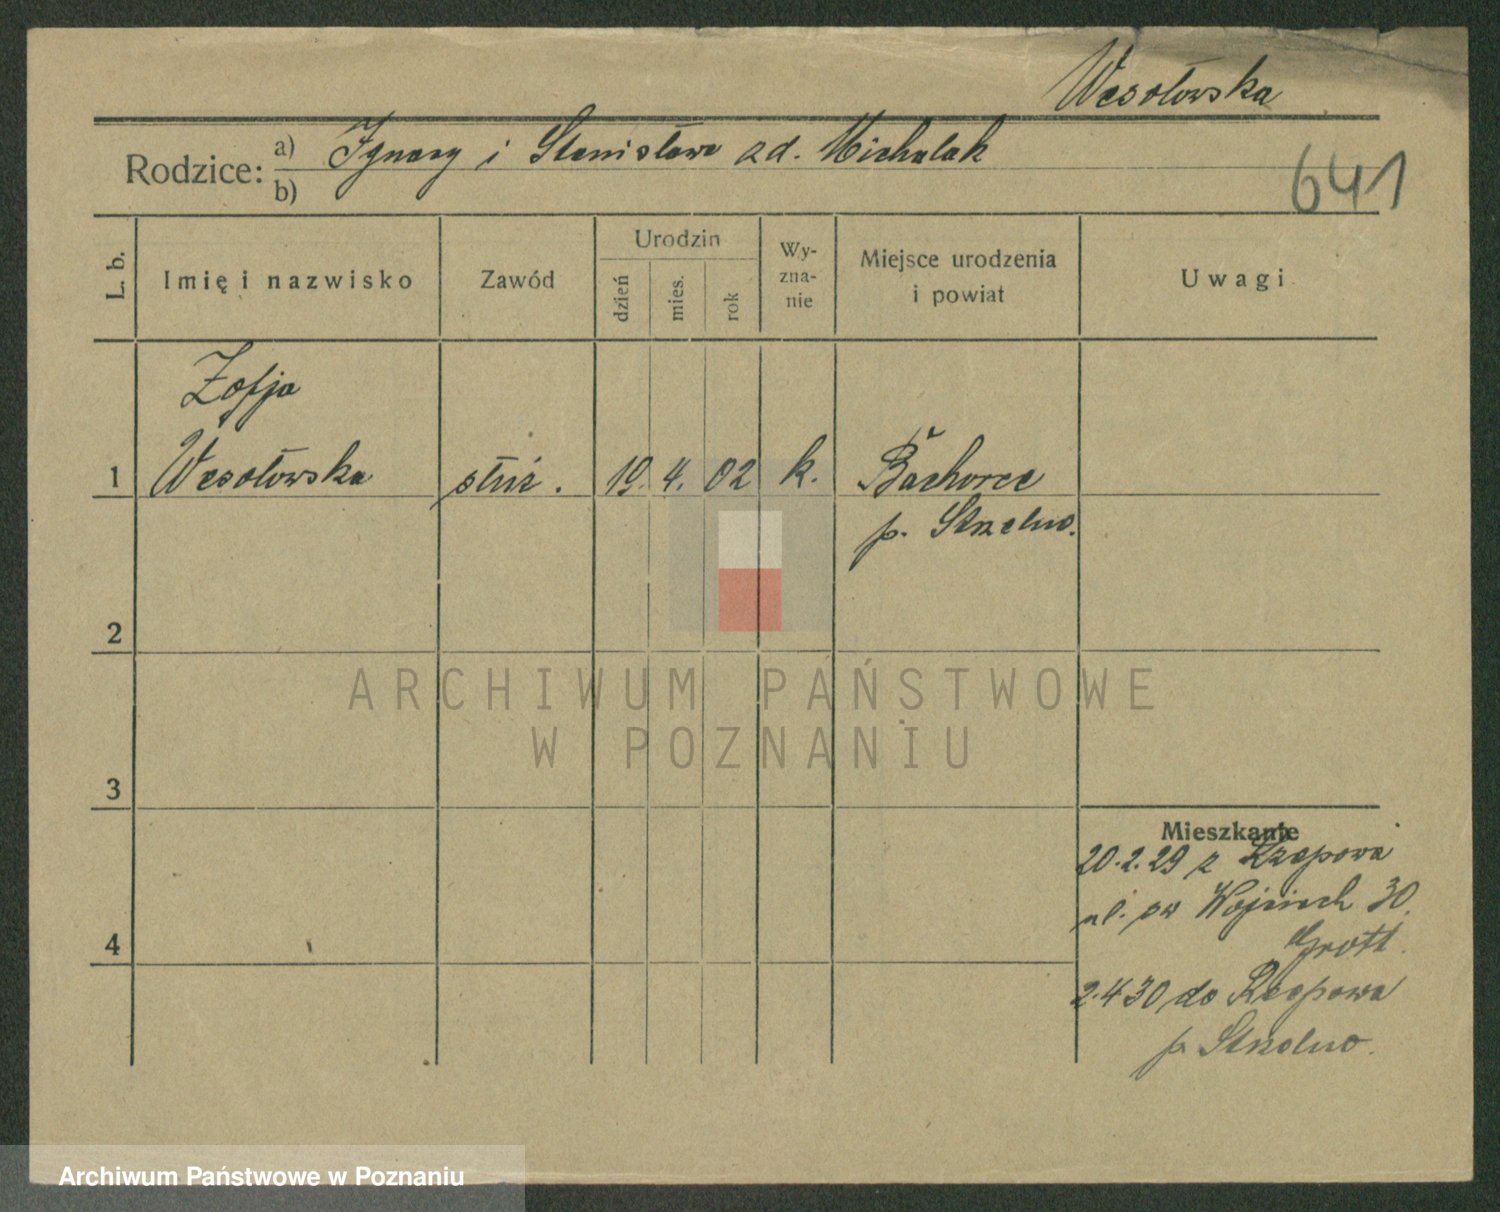 Wesołowska
Rodzice: a) Ignacy i Stanisława zd. Michalak
b)
641
L. b. Imię i nazwisko Zawód Urodzin dzień mies. rok Wy-zna-nie Miejsce urodzenia i powiat Uwagi
Zofja
1 Wesołowska służ. 19. 4. 02 k. Bachorce
p. Strzelno.
2
3
Mieszkanie
20.2.29 z Rzepowa
ul. św Wojciech 30.
Grott.
4
2.4 30 do Rzepowa
p. Strzelno.
ARCHIWUM PAŃSTWOWE
W POZNANIU
Archiwum Państwowe w Poznaniu